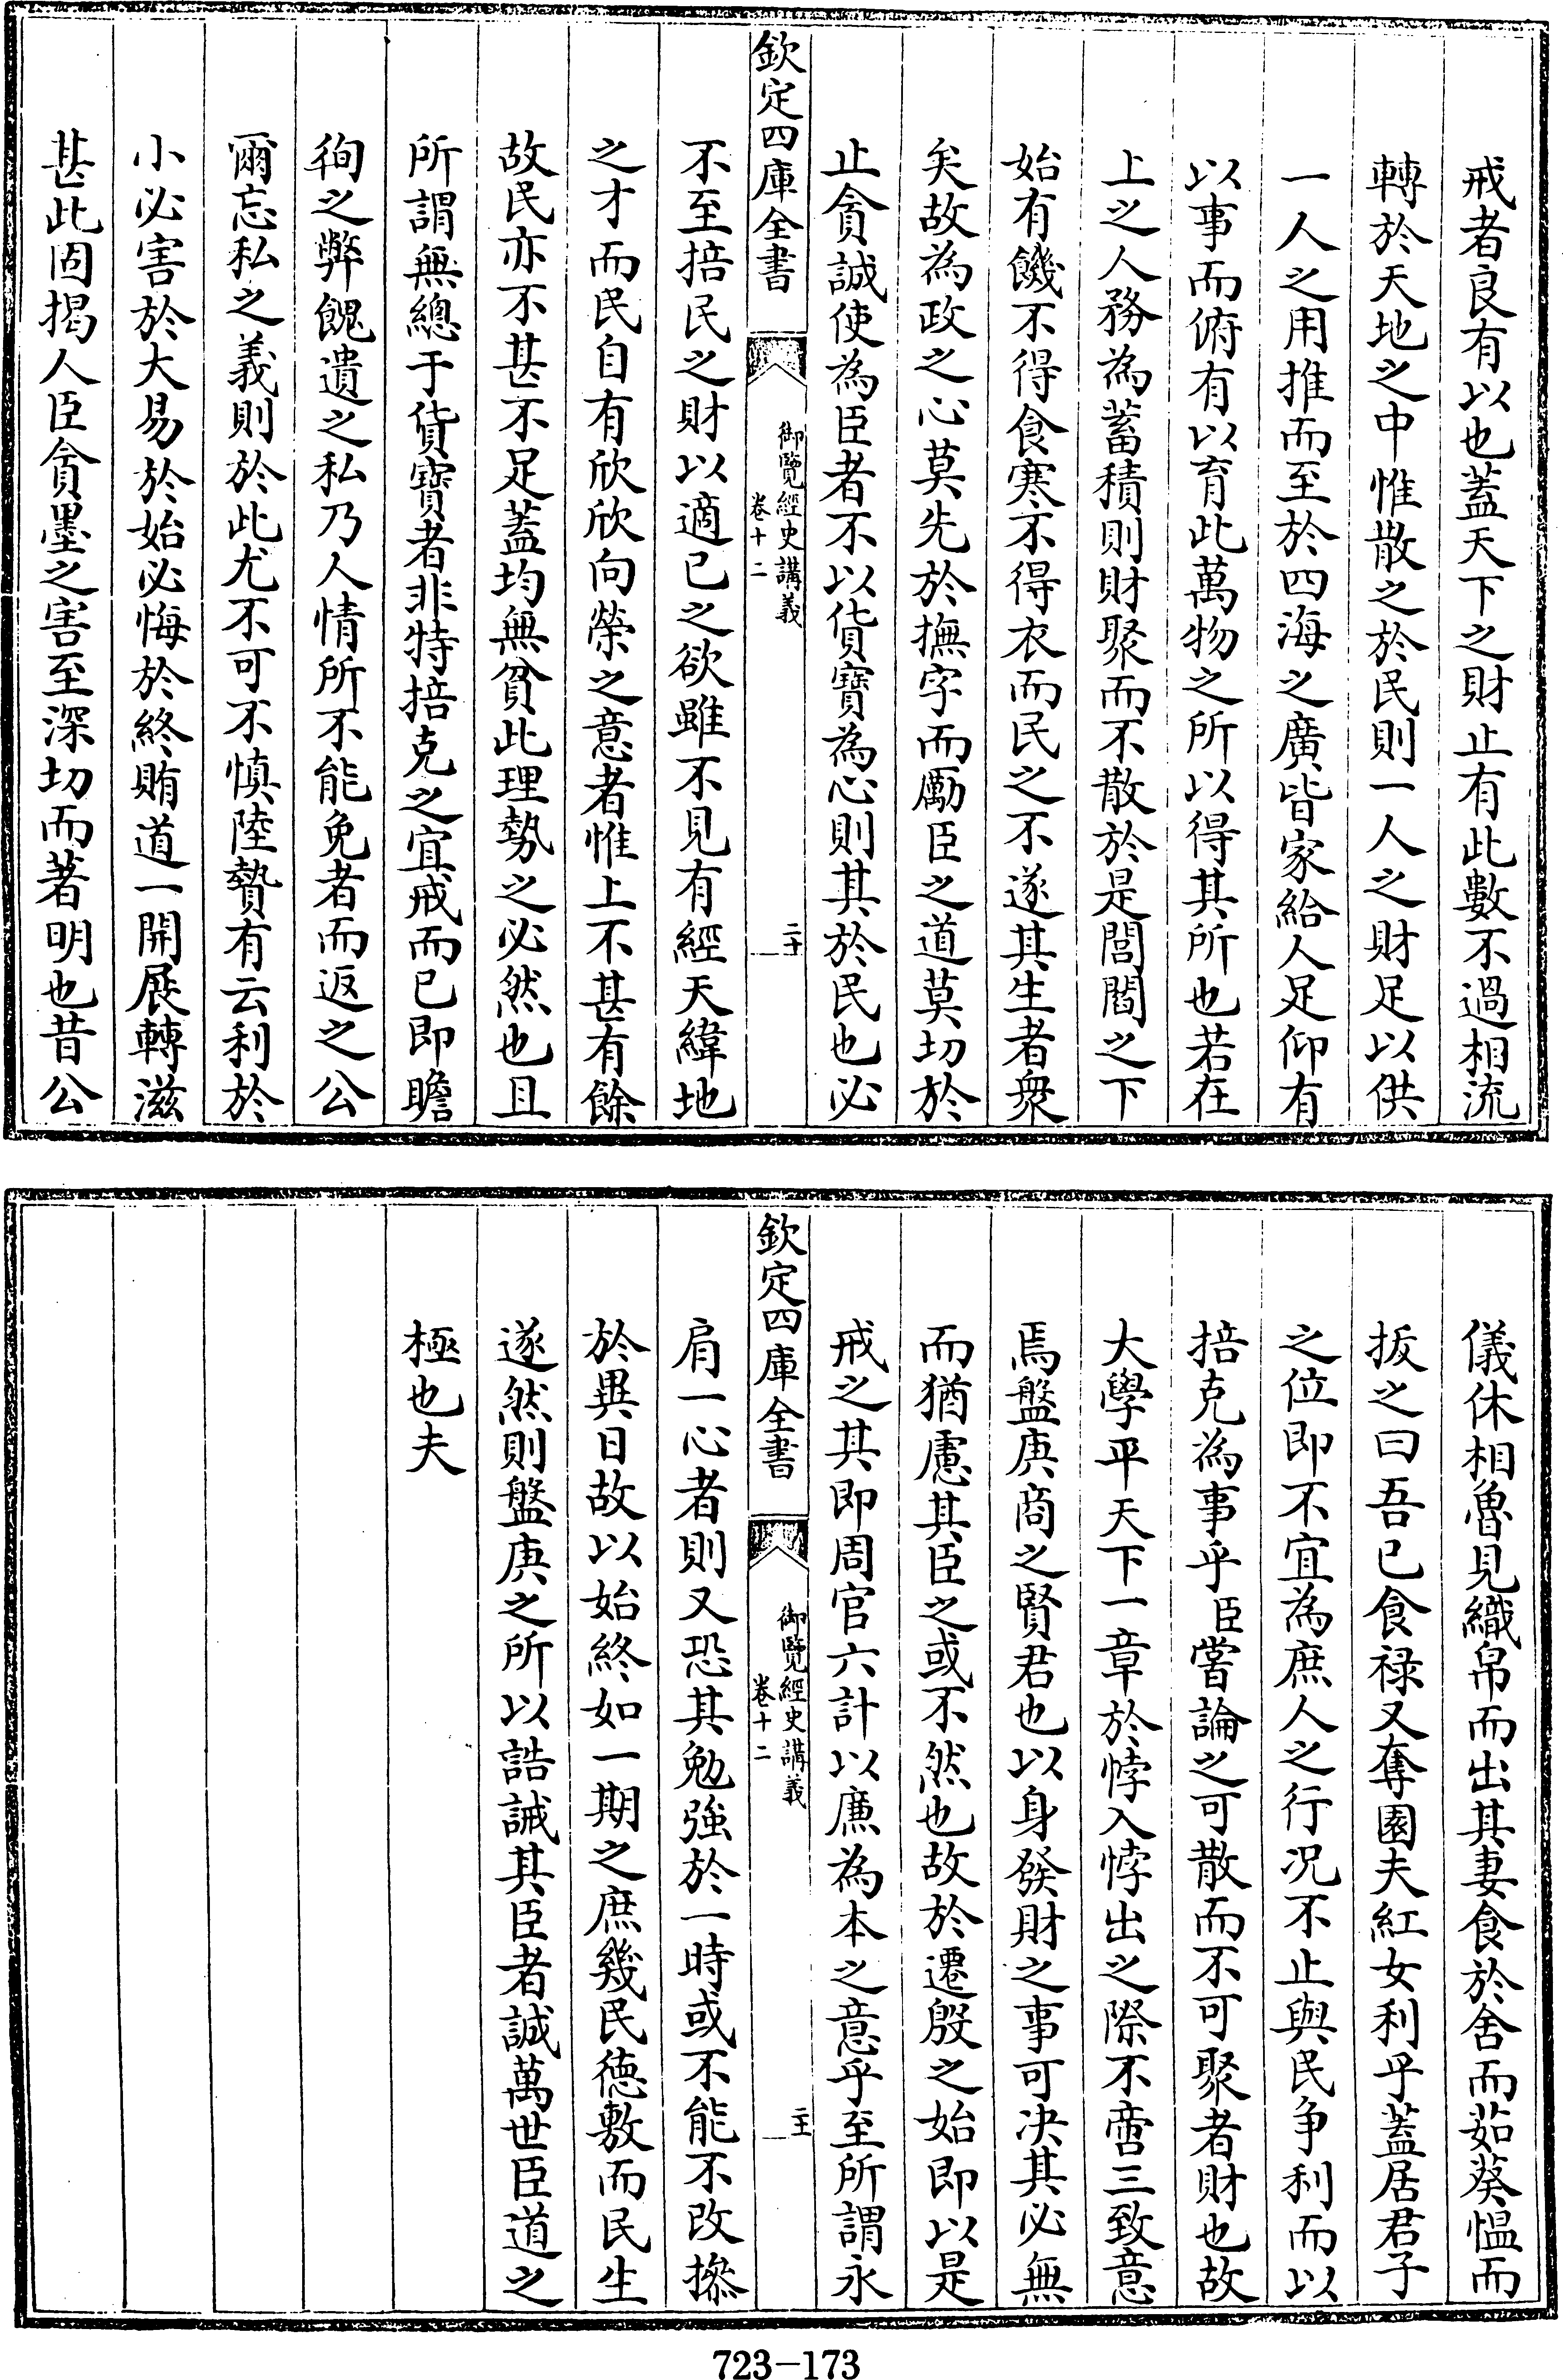 戒者良有以也蓋天下之財止有此數不過相流
轉於天地之中惟散之於民則一人之財足以供
一人之用推而至於四海之廣皆家給人足仰有
以事而俯有以育此萬物之所以得其所也若在
上之人務為蓄積則財聚而不散於是閭閻之下
始有饑不得食寒不得衣而民之不遂其生者衆
矣故為政之心莫先於撫字而勵臣之道莫切於
止貪誠使為臣者不以貨寶為心則其於民也必
欽定四庫全書
御覽經史講義
卷十二
二十
不至掊民之財以適已之欲雖不見有經天緯地
之才而民自有欣欣向榮之意者惟上不甚有餘
故民亦不甚不足蓋均無貧此理勢之必然也且
所謂無總于貨寶者非特掊克之宜戒而已即瞻
徇之弊餽遺之私乃人情所不能免者而返之公
爾忘私之義則於此尤不可不慎陸贄有云利於
小必害於大易於始必悔於終賄道一開展轉滋
甚此固揭人臣貪墨之害至深切而著明也昔公
儀休相魯見織帛而出其妻食於舍而茹葵愠而
拔之曰吾已食禄又奪園夫紅女利乎蓋居君子
之位即不宜為庶人之行况不止與民争利而以
掊克為事乎臣嘗論之可散而不可聚者財也故
大學平天下一章於悖入悖出之際不啻三致意
焉盤庚商之賢君也以身發財之事可决其必無
而猶慮其臣之或不然也故於遷殷之始即以是
戒之其即周官六計以廉為本之意乎至所謂永
欽定四庫全書
御覽經史講義
卷十二
二十一
肩一心者則又恐其勉強於一時或不能不改操
於異日故以始終如一期之庶幾民德敷而民生
遂然則盤庚之所以誥誡其臣者誠萬世臣道之
極也夫
723-173